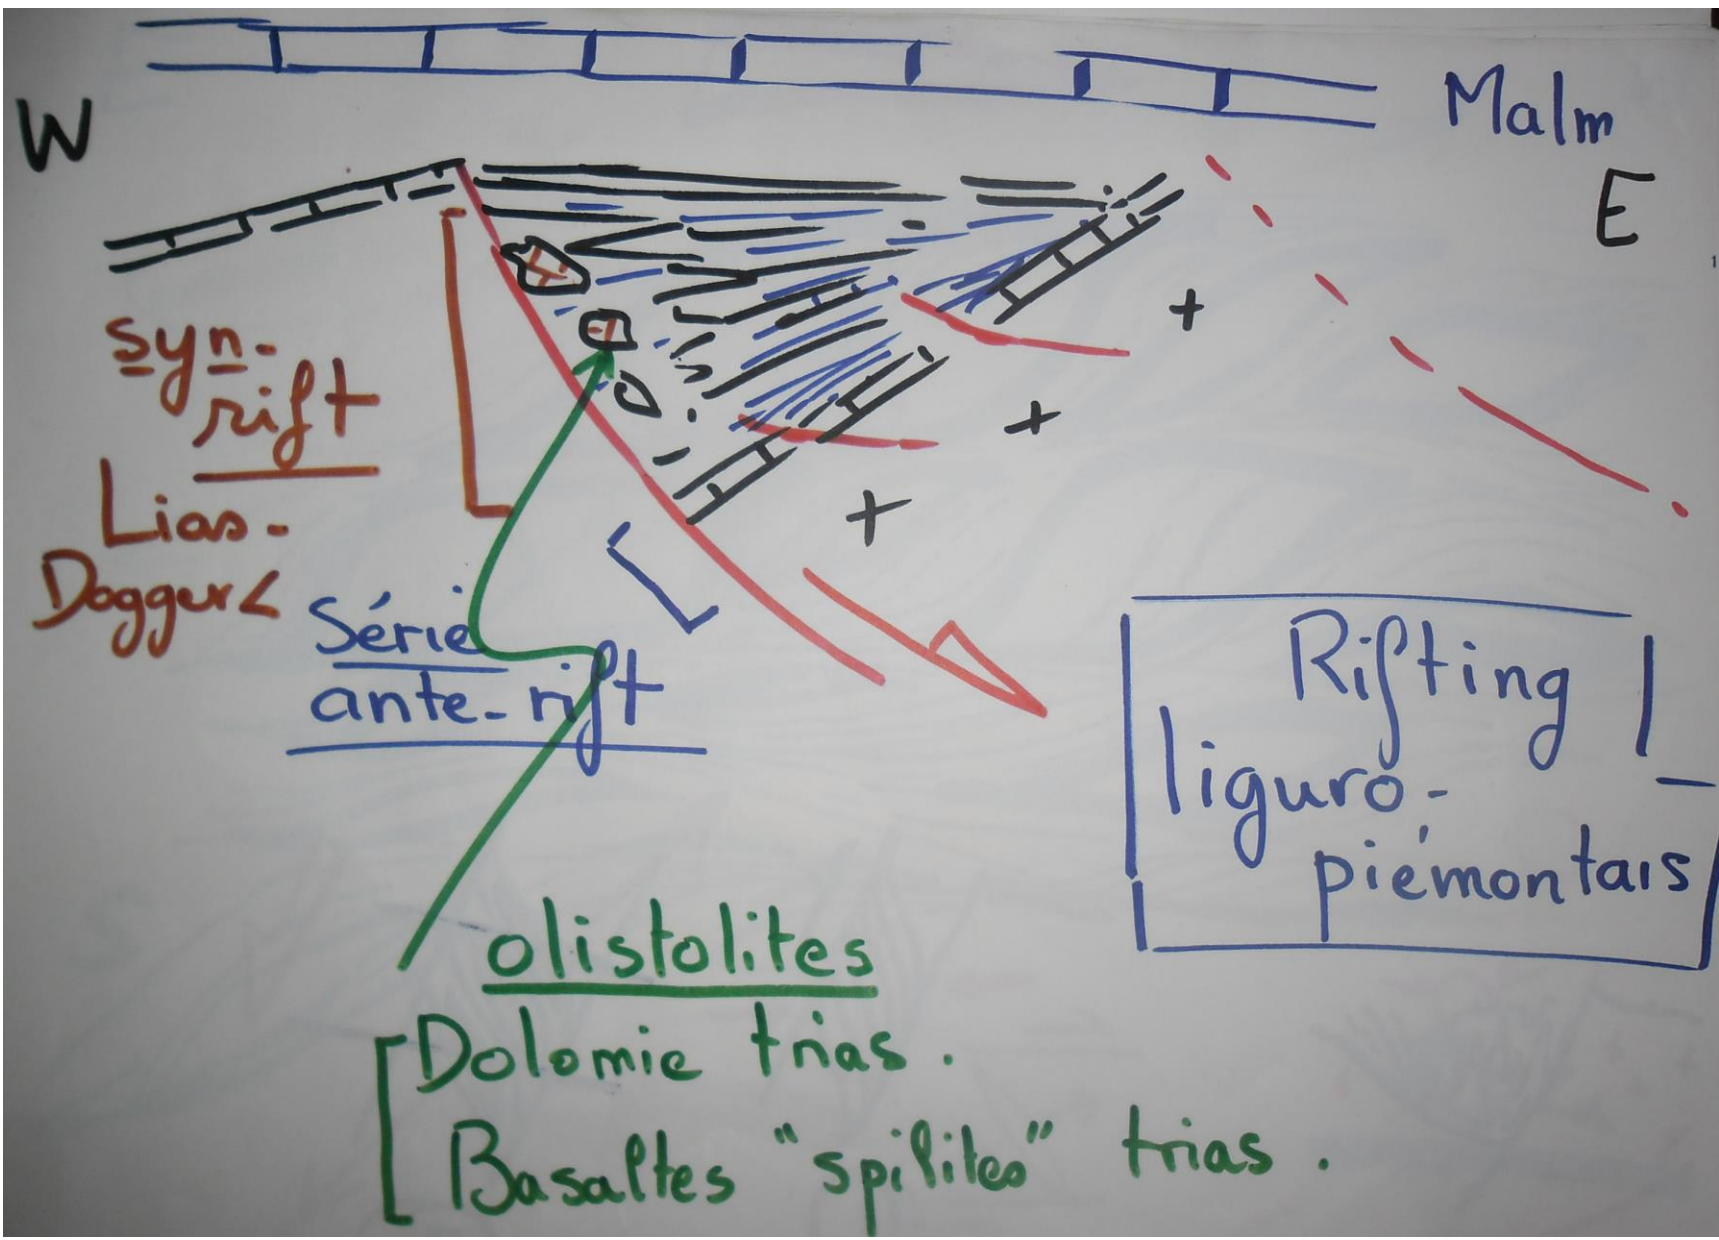 Malm
W
E
syn-
rift
Lias-
Dogger<
Série
ante-rift
Rifting
liguro-
piémontais
olistolites
Dolomie trias.
Basaltes "spilites" trias.